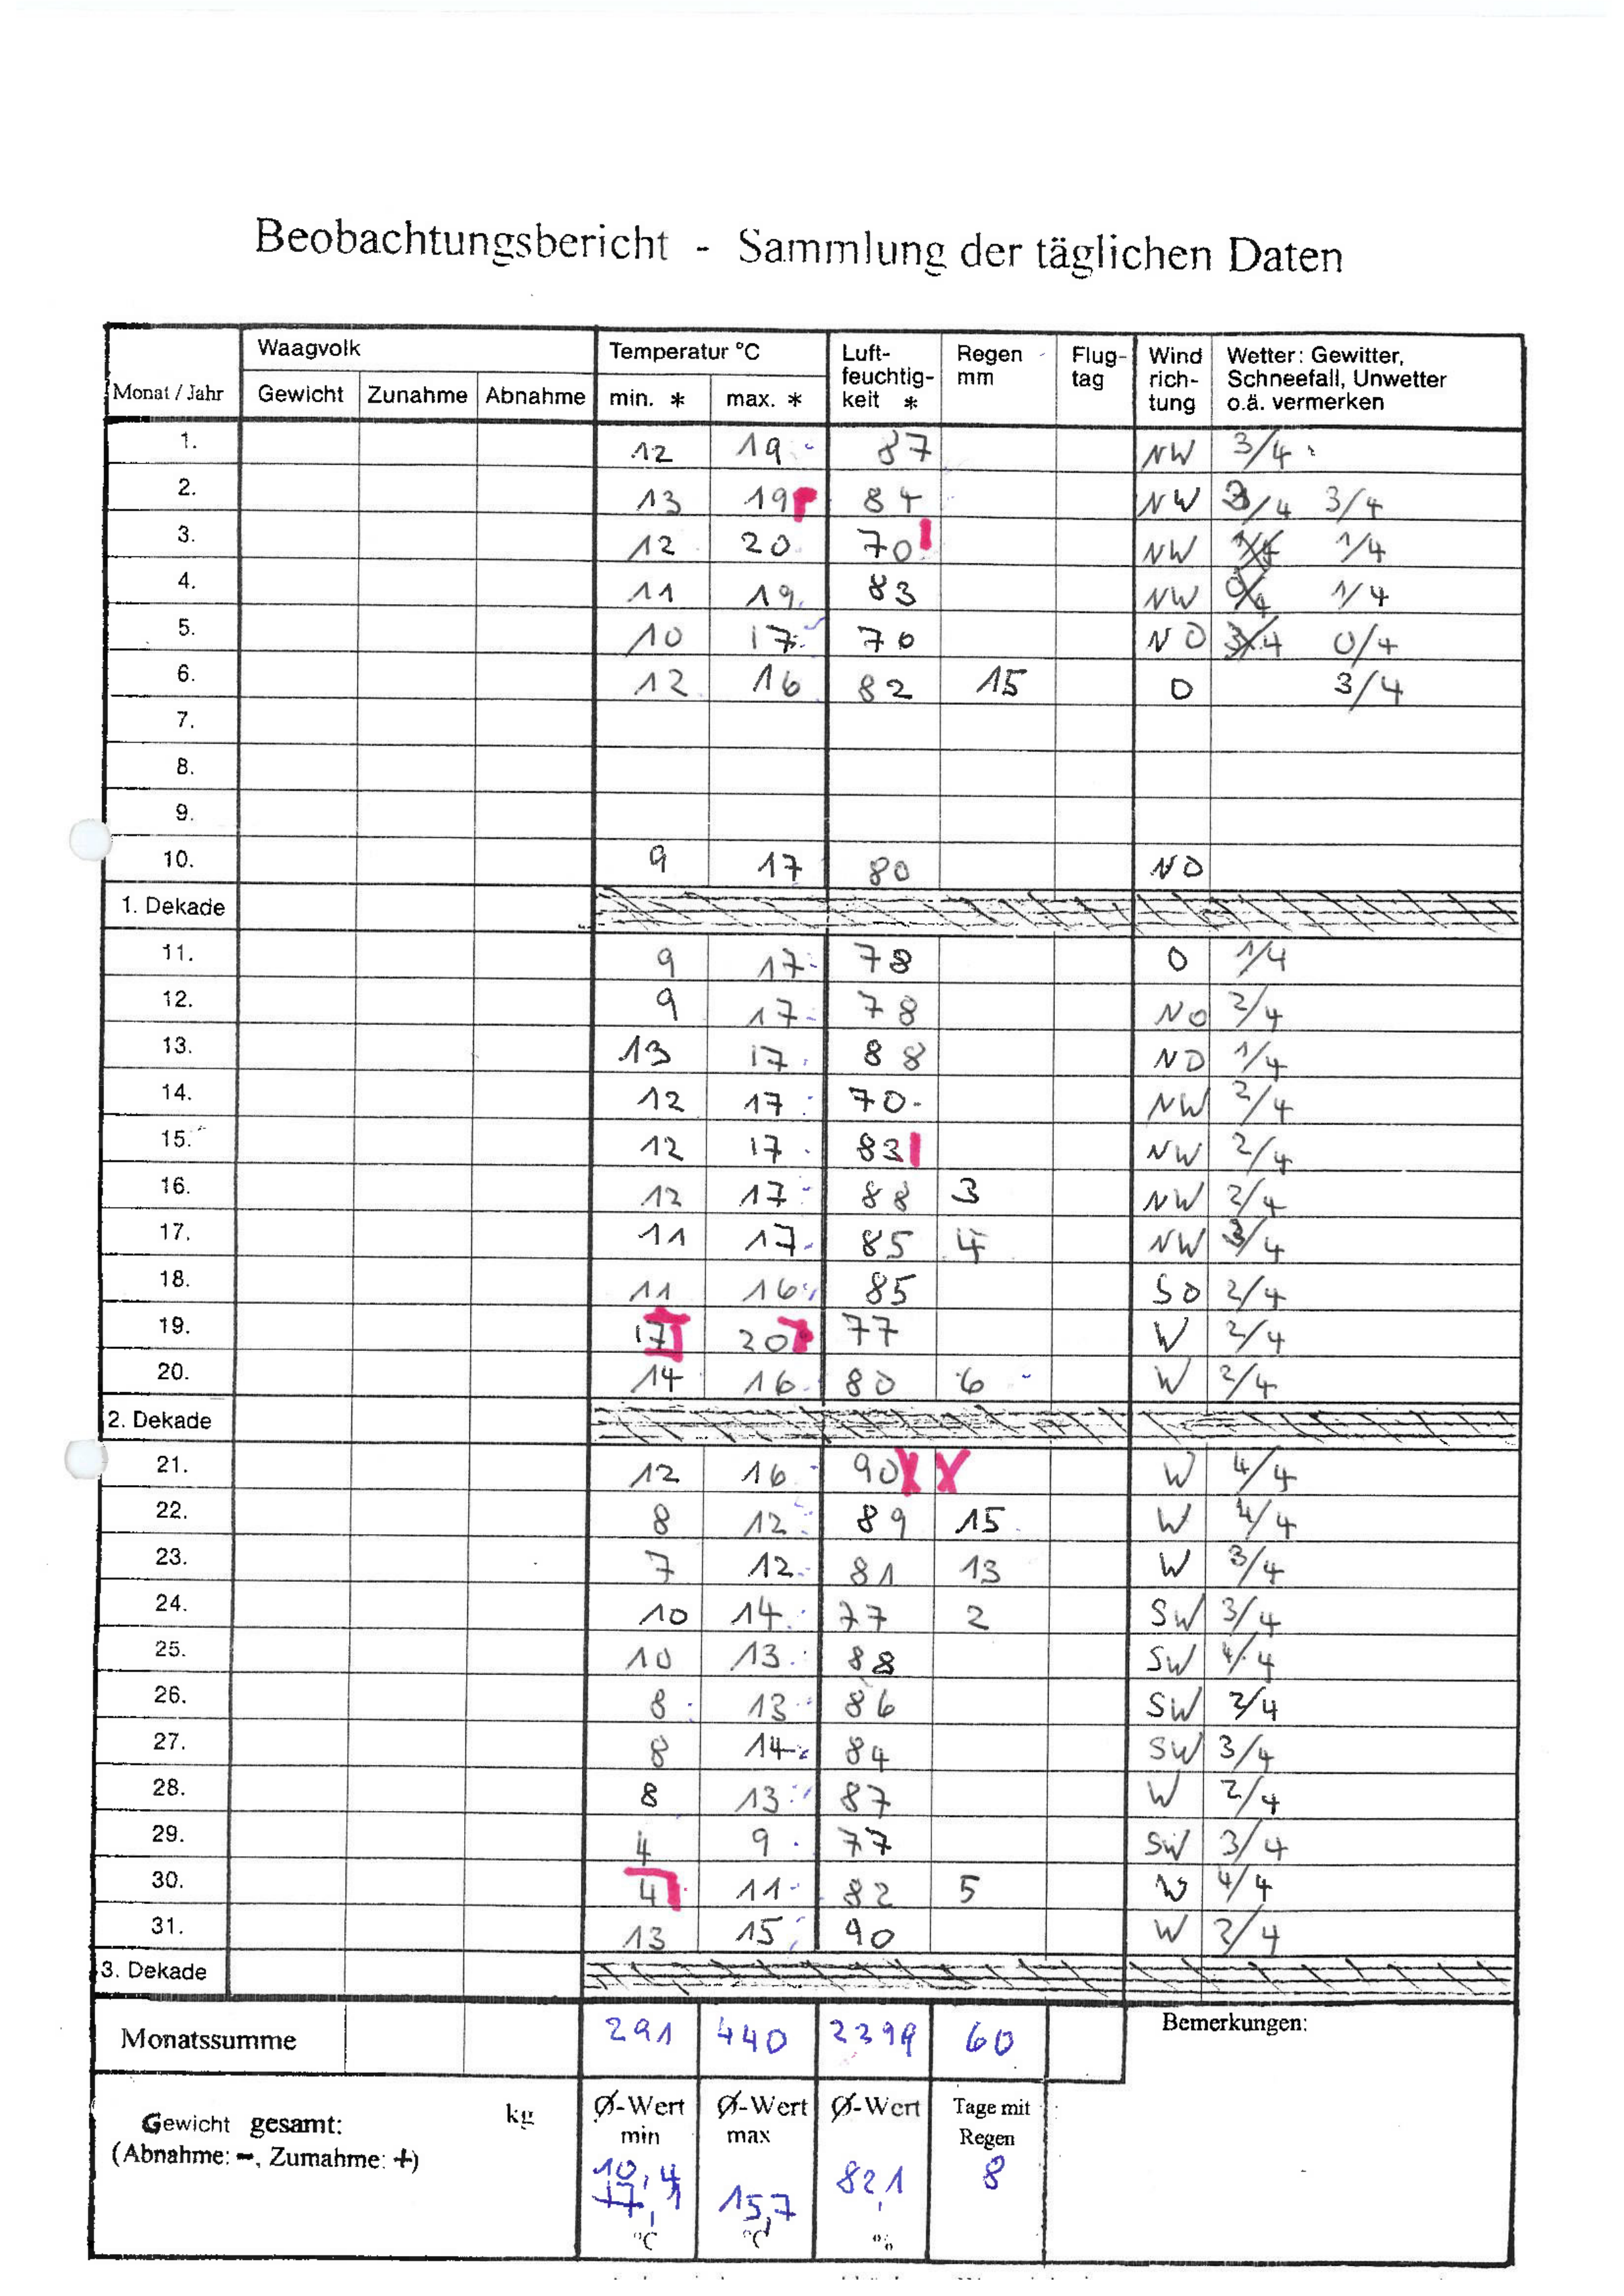 Beobachtungsbericht - Sammlung der täglichen Daten
Monat / Jahr Waagvolk Temperatur °C Luft-feuchtig-keit * Regen mm Flug-tag Wind rich-tung Wetter: Gewitter, Schneefall, Unwetter o.ä. vermerken
Gewicht Zunahme Abnahme min. * max. *
1. 12 19 87 NW 3/4
2. 13 19 84 NW 3/4 3/4
3. 12 20 70 NW 1/4
4. 11 19 83 NW 1/4
5. 10 17 70 NO 0/4
6. 12 16 82 15 O 3/4
7.
8.
9.
10. 9 17 80 NO
1. Dekade
11. 9 17 78 O 1/4
12. 9 17 78 NO 2/4
13. 13 17 88 NO 1/4
14. 12 17 70 NW 2/4
15. 12 17 83 NW 2/4
16. 12 17 88 3 NW 2/4
17. 11 17 85 4 NW 3/4
18. 11 16 85 SO 2/4
19. 17 20 77 W 2/4
20. 14 16 80 6 W 2/4
2. Dekade
21. 12 16 90 X X W 4/4
22. 8 12 89 15 W 4/4
23. 7 12 81 13 W 3/4
24. 10 14 77 2 SW 3/4
25. 10 13 88 SW 4/4
26. 8 13 86 SW 2/4
27. 8 14 84 SW 3/4
28. 8 13 87 W 2/4
29. 4 9 77 SW 3/4
30. 4 11 82 5 W 4/4
31. 13 15 90 W 2/4
3. Dekade
Monatssumme 291 440 2399 60 Bemerkungen:
Gewicht gesamt: kg
(Abnahme: -, Zumahme: +)
Ø-Wert min Ø-Wert max Ø-Wert Tage mit Regen
10,4 15,7 82,1 8
17,1
°C °C %